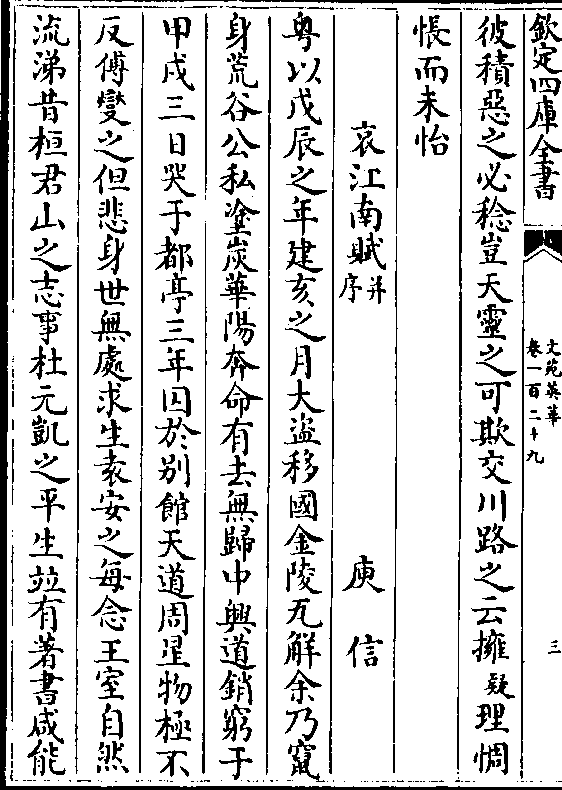 欽定四庫全書
文苑英華
卷一百二十九
三
彼積惡之必稔豈天靈之可欺交川路之云擁疑理惆
悵而未怡
哀江南賦并序
庾信
粤以戊辰之年建亥之月大盗移國金陵瓦解余乃竄
身荒谷公私塗炭華陽奔命有去無歸中興道銷窮于
甲戌三日哭于都亭三年囚於别館天道周星物極不
反傅燮之但悲身世無處求生袁安之每念王室自然
流涕昔桓君山之志事杜元凱之平生並有著書咸能